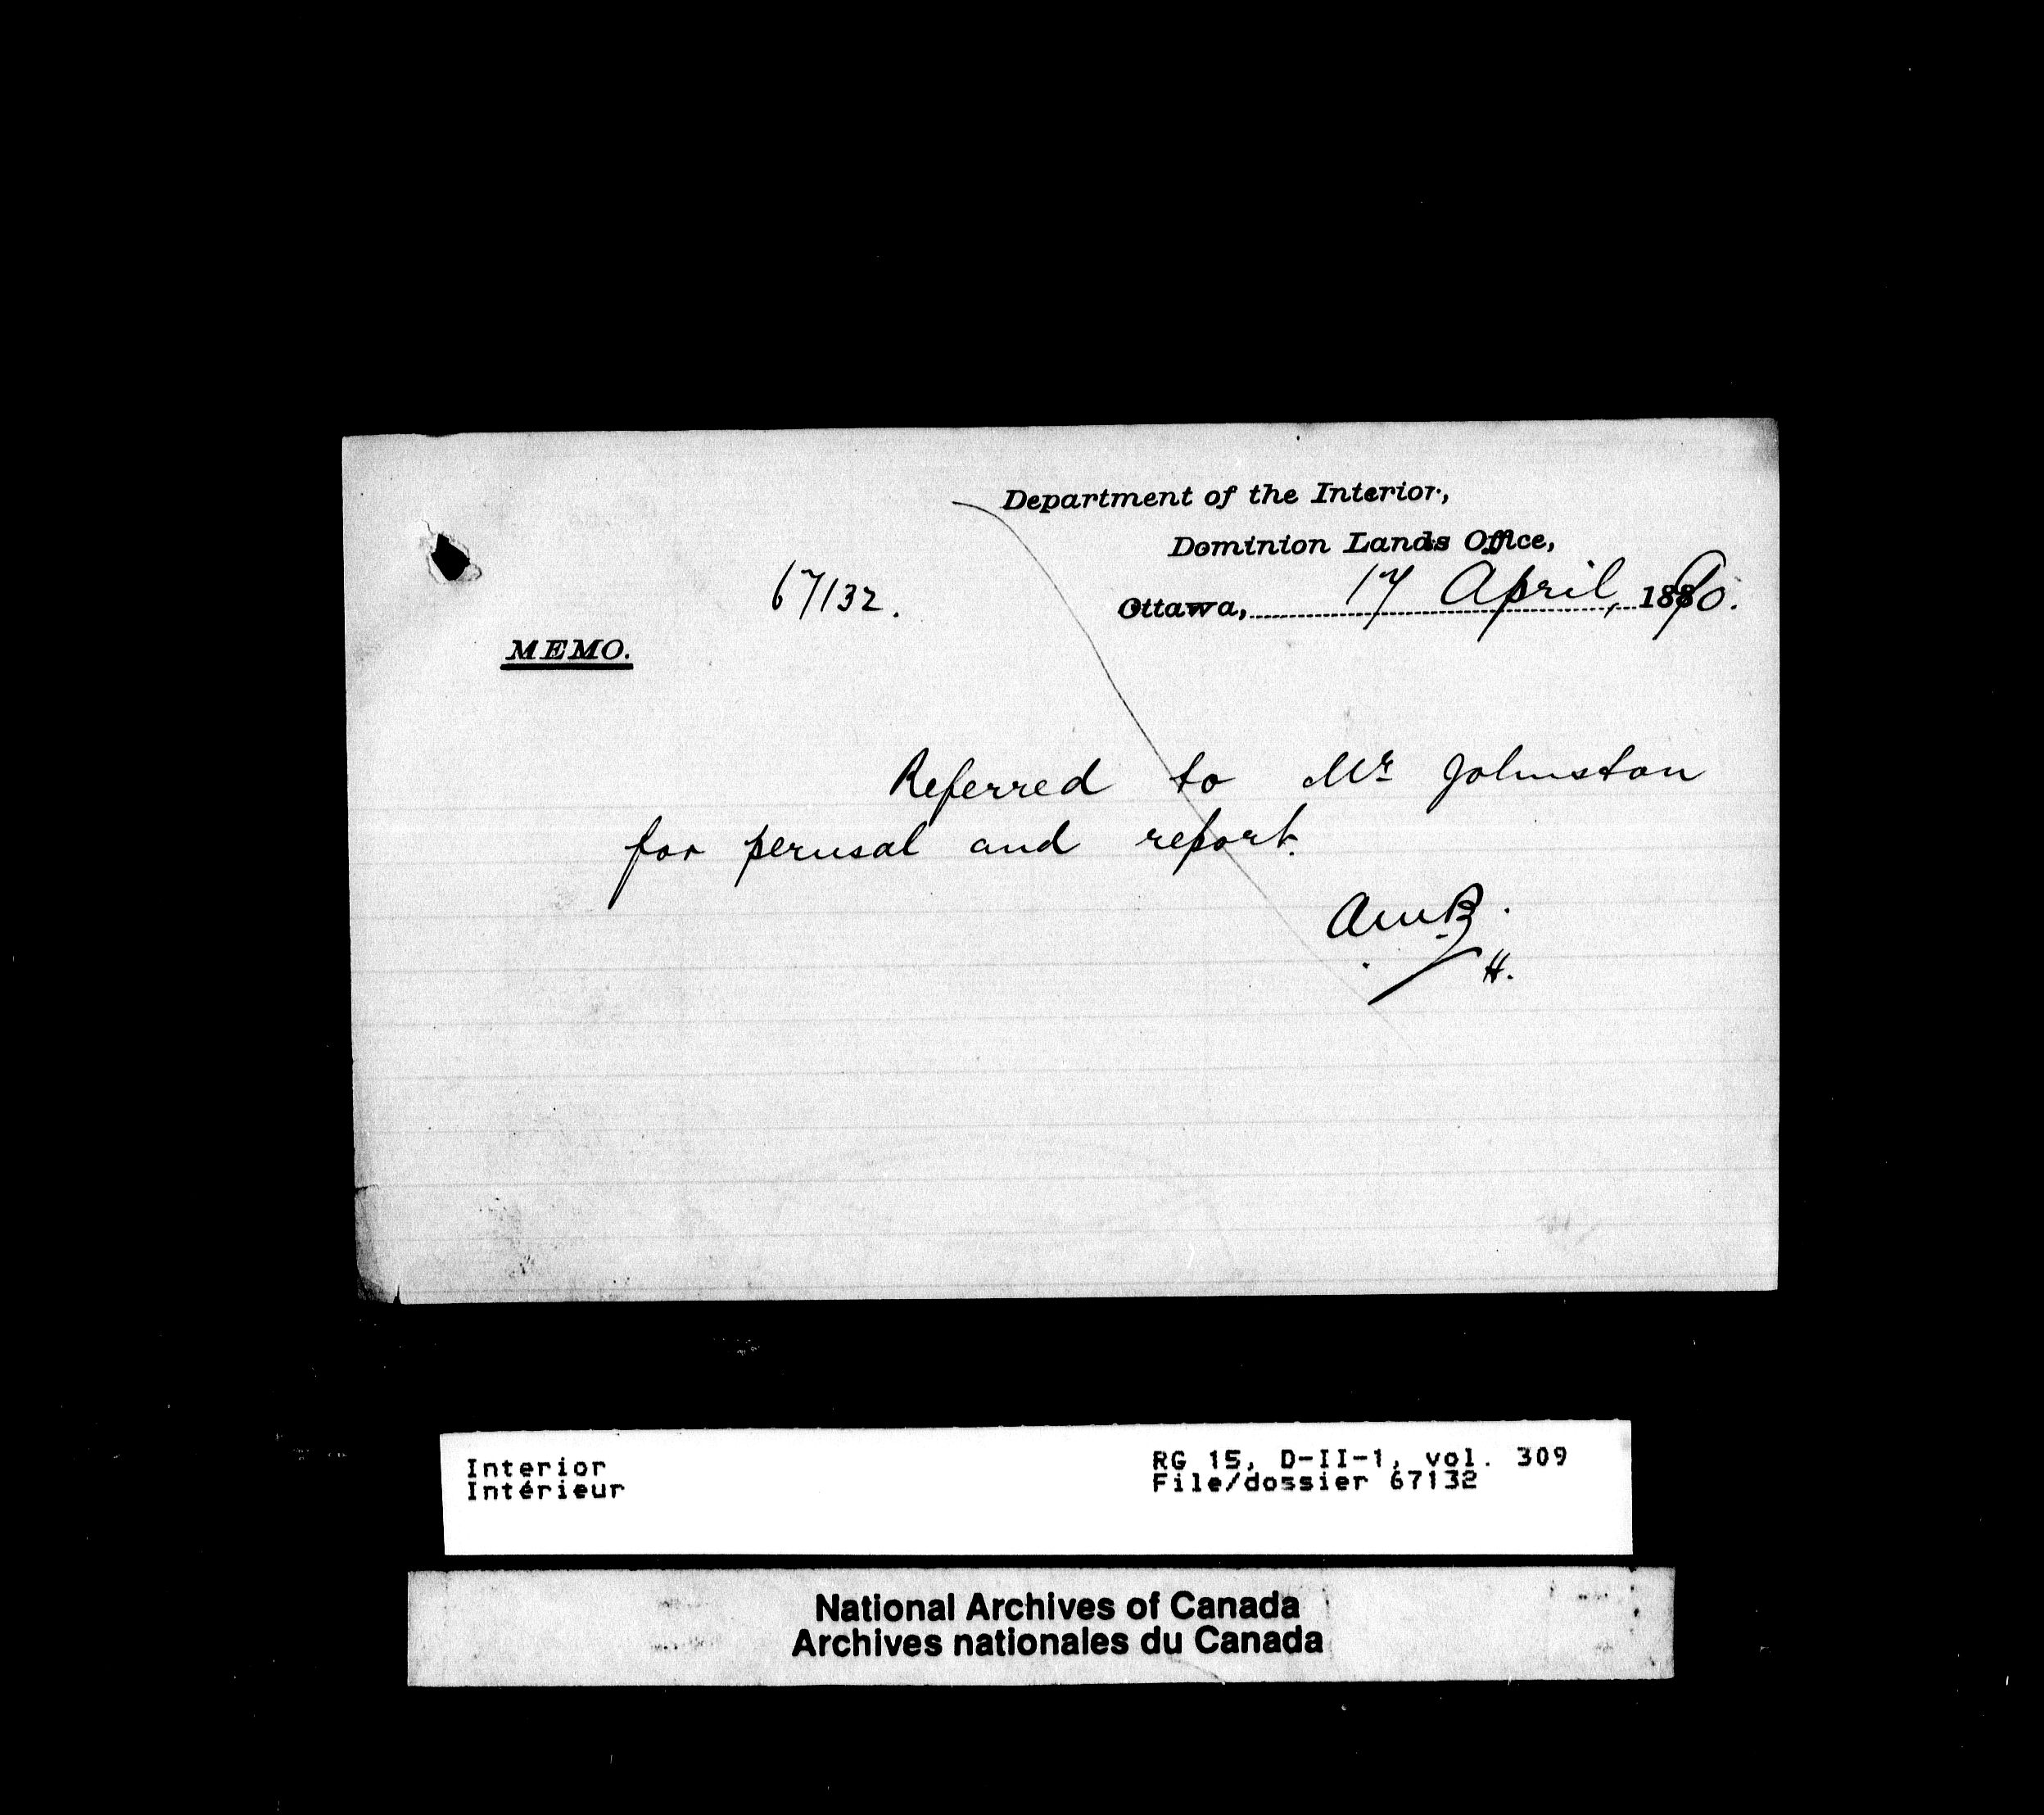 Department of the Interior,
Dominion Lands Office,
67132.
Ottawa, 17 April, 1890.
MEMO.
Referred to Mr Johnston
for perusal and report.
AMB.
H.
Interior
Intérieur
RG 15, D-II-1, vol. 309
File/dossier 67132
National Archives of Canada
Archives nationales du Canada